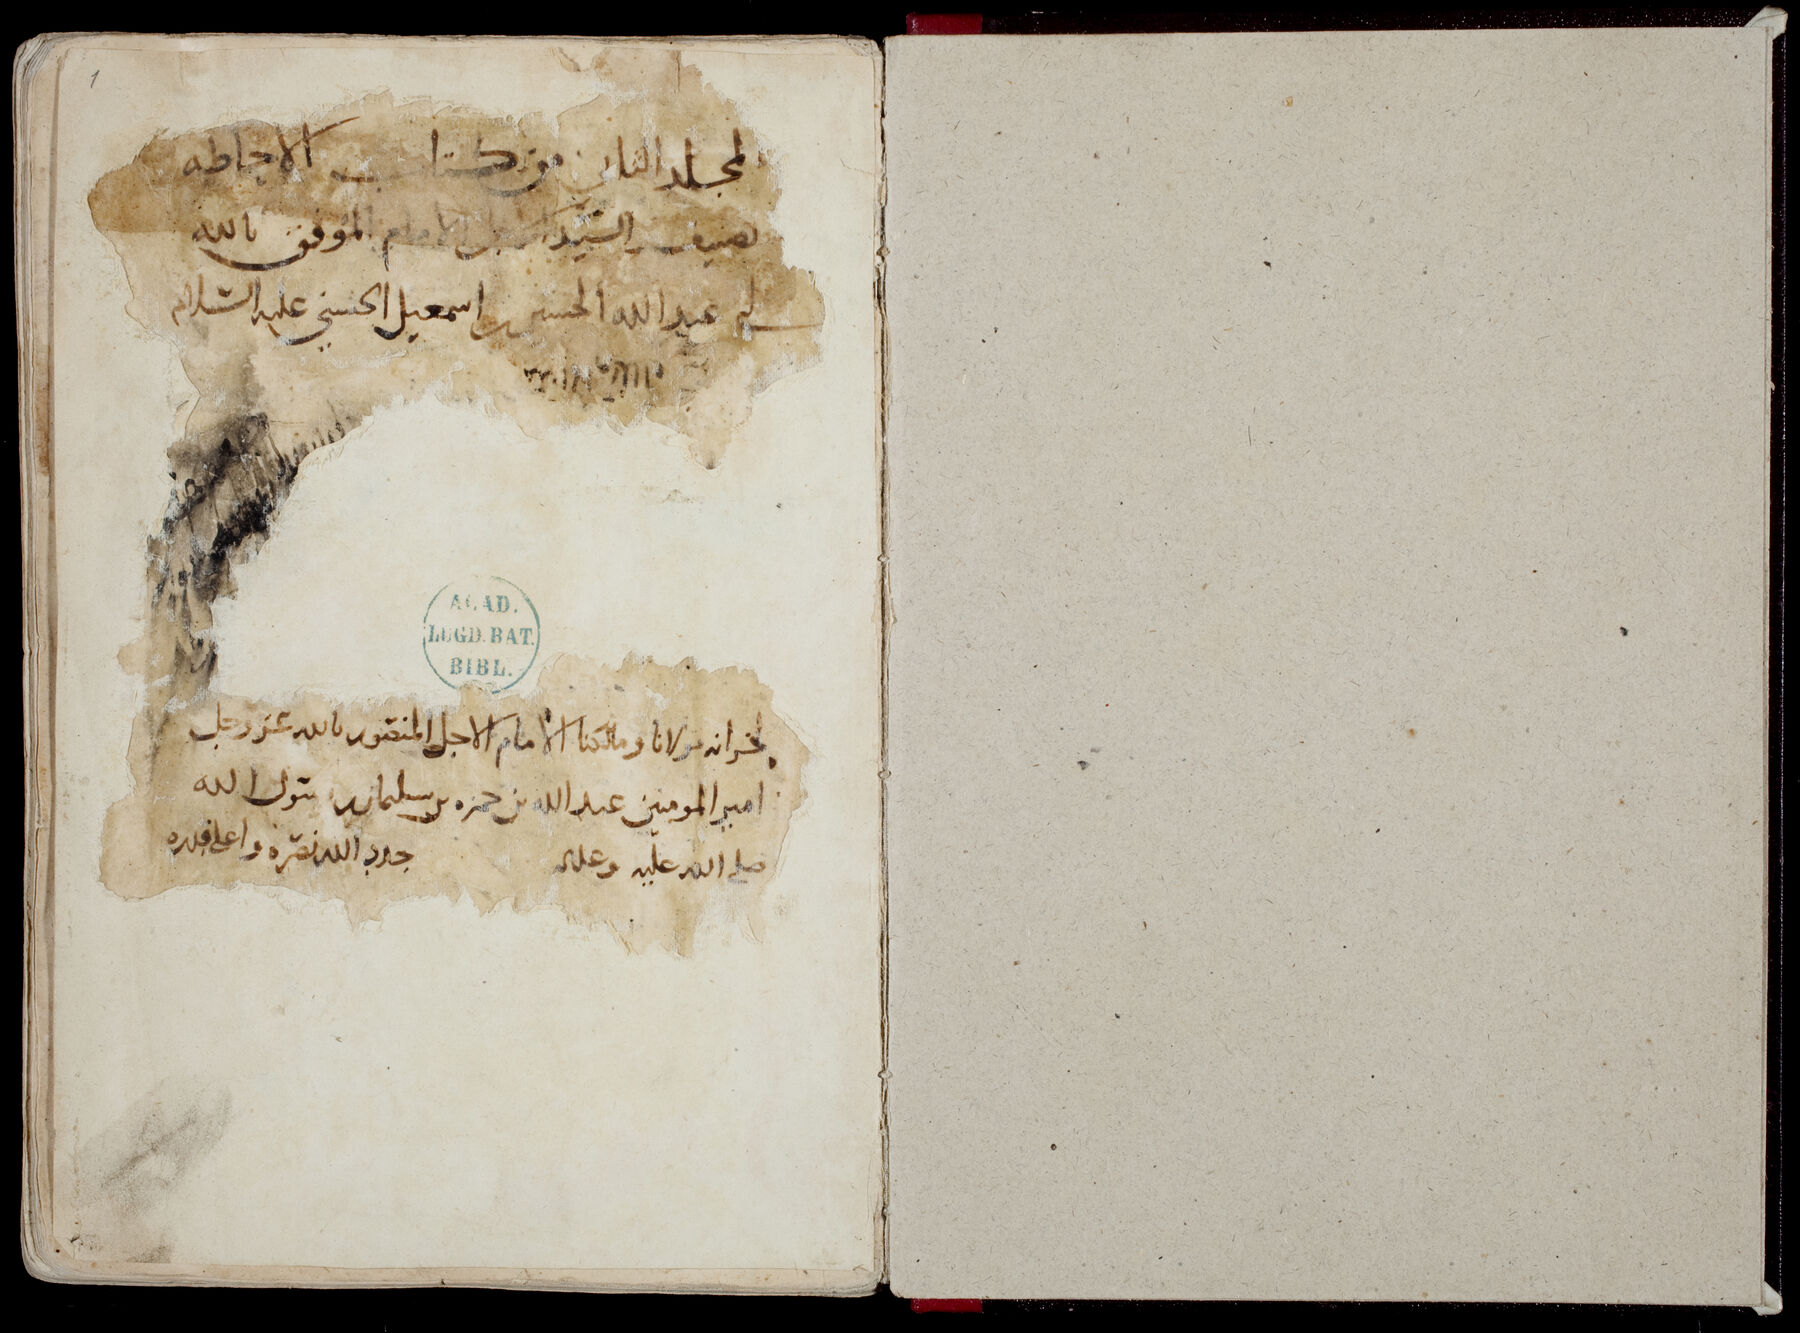 1
المجلد الثاني من كتاب الاحاطه
تصنيف السيد الامام الموفق بالله
عبد الله الحسين بن اسمعيل الحسني عليه السلام
ACAD.
LUGD. BAT.
BIBL.
لخزانه مولانا ومالكنا الامام الاجل المنصور بالله عز وجل
امير المومنين عبد الله بن حمزه بن سليمان بن رسول الله
صلى الله عليه وعلى جدد الله نصره واعلى قدره